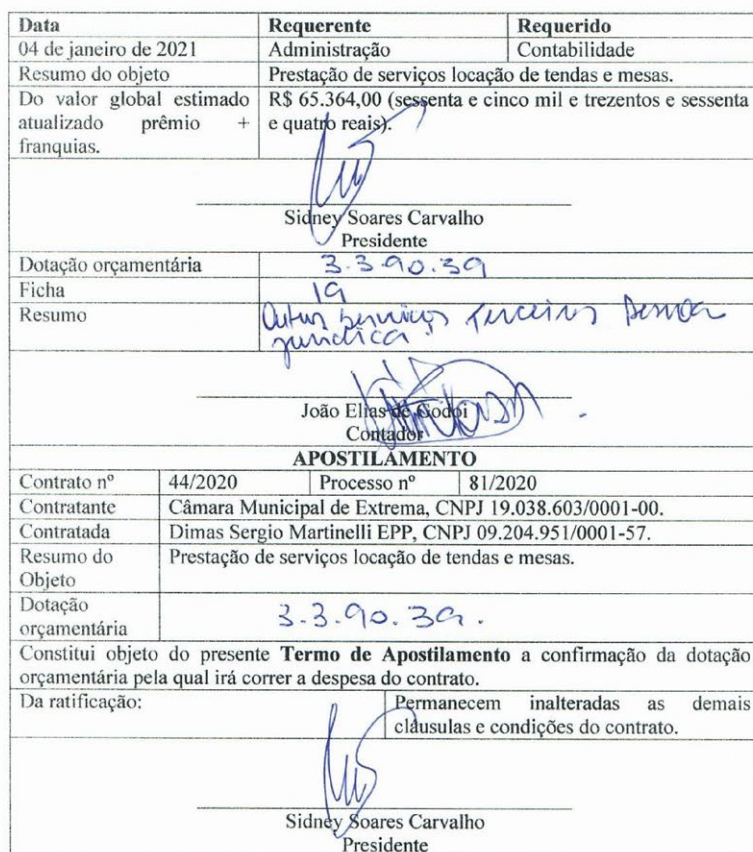 Data Requerente Requerido
04 de janeiro de 2021 Administração Contabilidade
Resumo do objeto Prestação de serviços locação de tendas e mesas.
Do valor global estimado R$ 65.364,00 (sessenta e cinco mil e trezentos e sessenta
atualizado prêmio + e quatro reais).
franquias.
Sidney Soares Carvalho
Presidente
Dotação orçamentária 3.3.90.39
Ficha 19
Resumo Outros serviços Terceiros Pessoa
jurídica.
João Elias de Godoi
Contador
APOSTILAMENTO
Contrato nº 44/2020 Processo nº 81/2020
Contratante Câmara Municipal de Extrema, CNPJ 19.038.603/0001-00.
Contratada Dimas Sergio Martinelli EPP, CNPJ 09.204.951/0001-57.
Resumo do Prestação de serviços locação de tendas e mesas.
Objeto
Dotação
orçamentária 3.3.90.39.
Constitui objeto do presente Termo de Apostilamento a confirmação da dotação
orçamentária pela qual irá correr a despesa do contrato.
Da ratificação: Permanecem inalteradas as demais
cláusulas e condições do contrato.
Sidney Soares Carvalho
Presidente